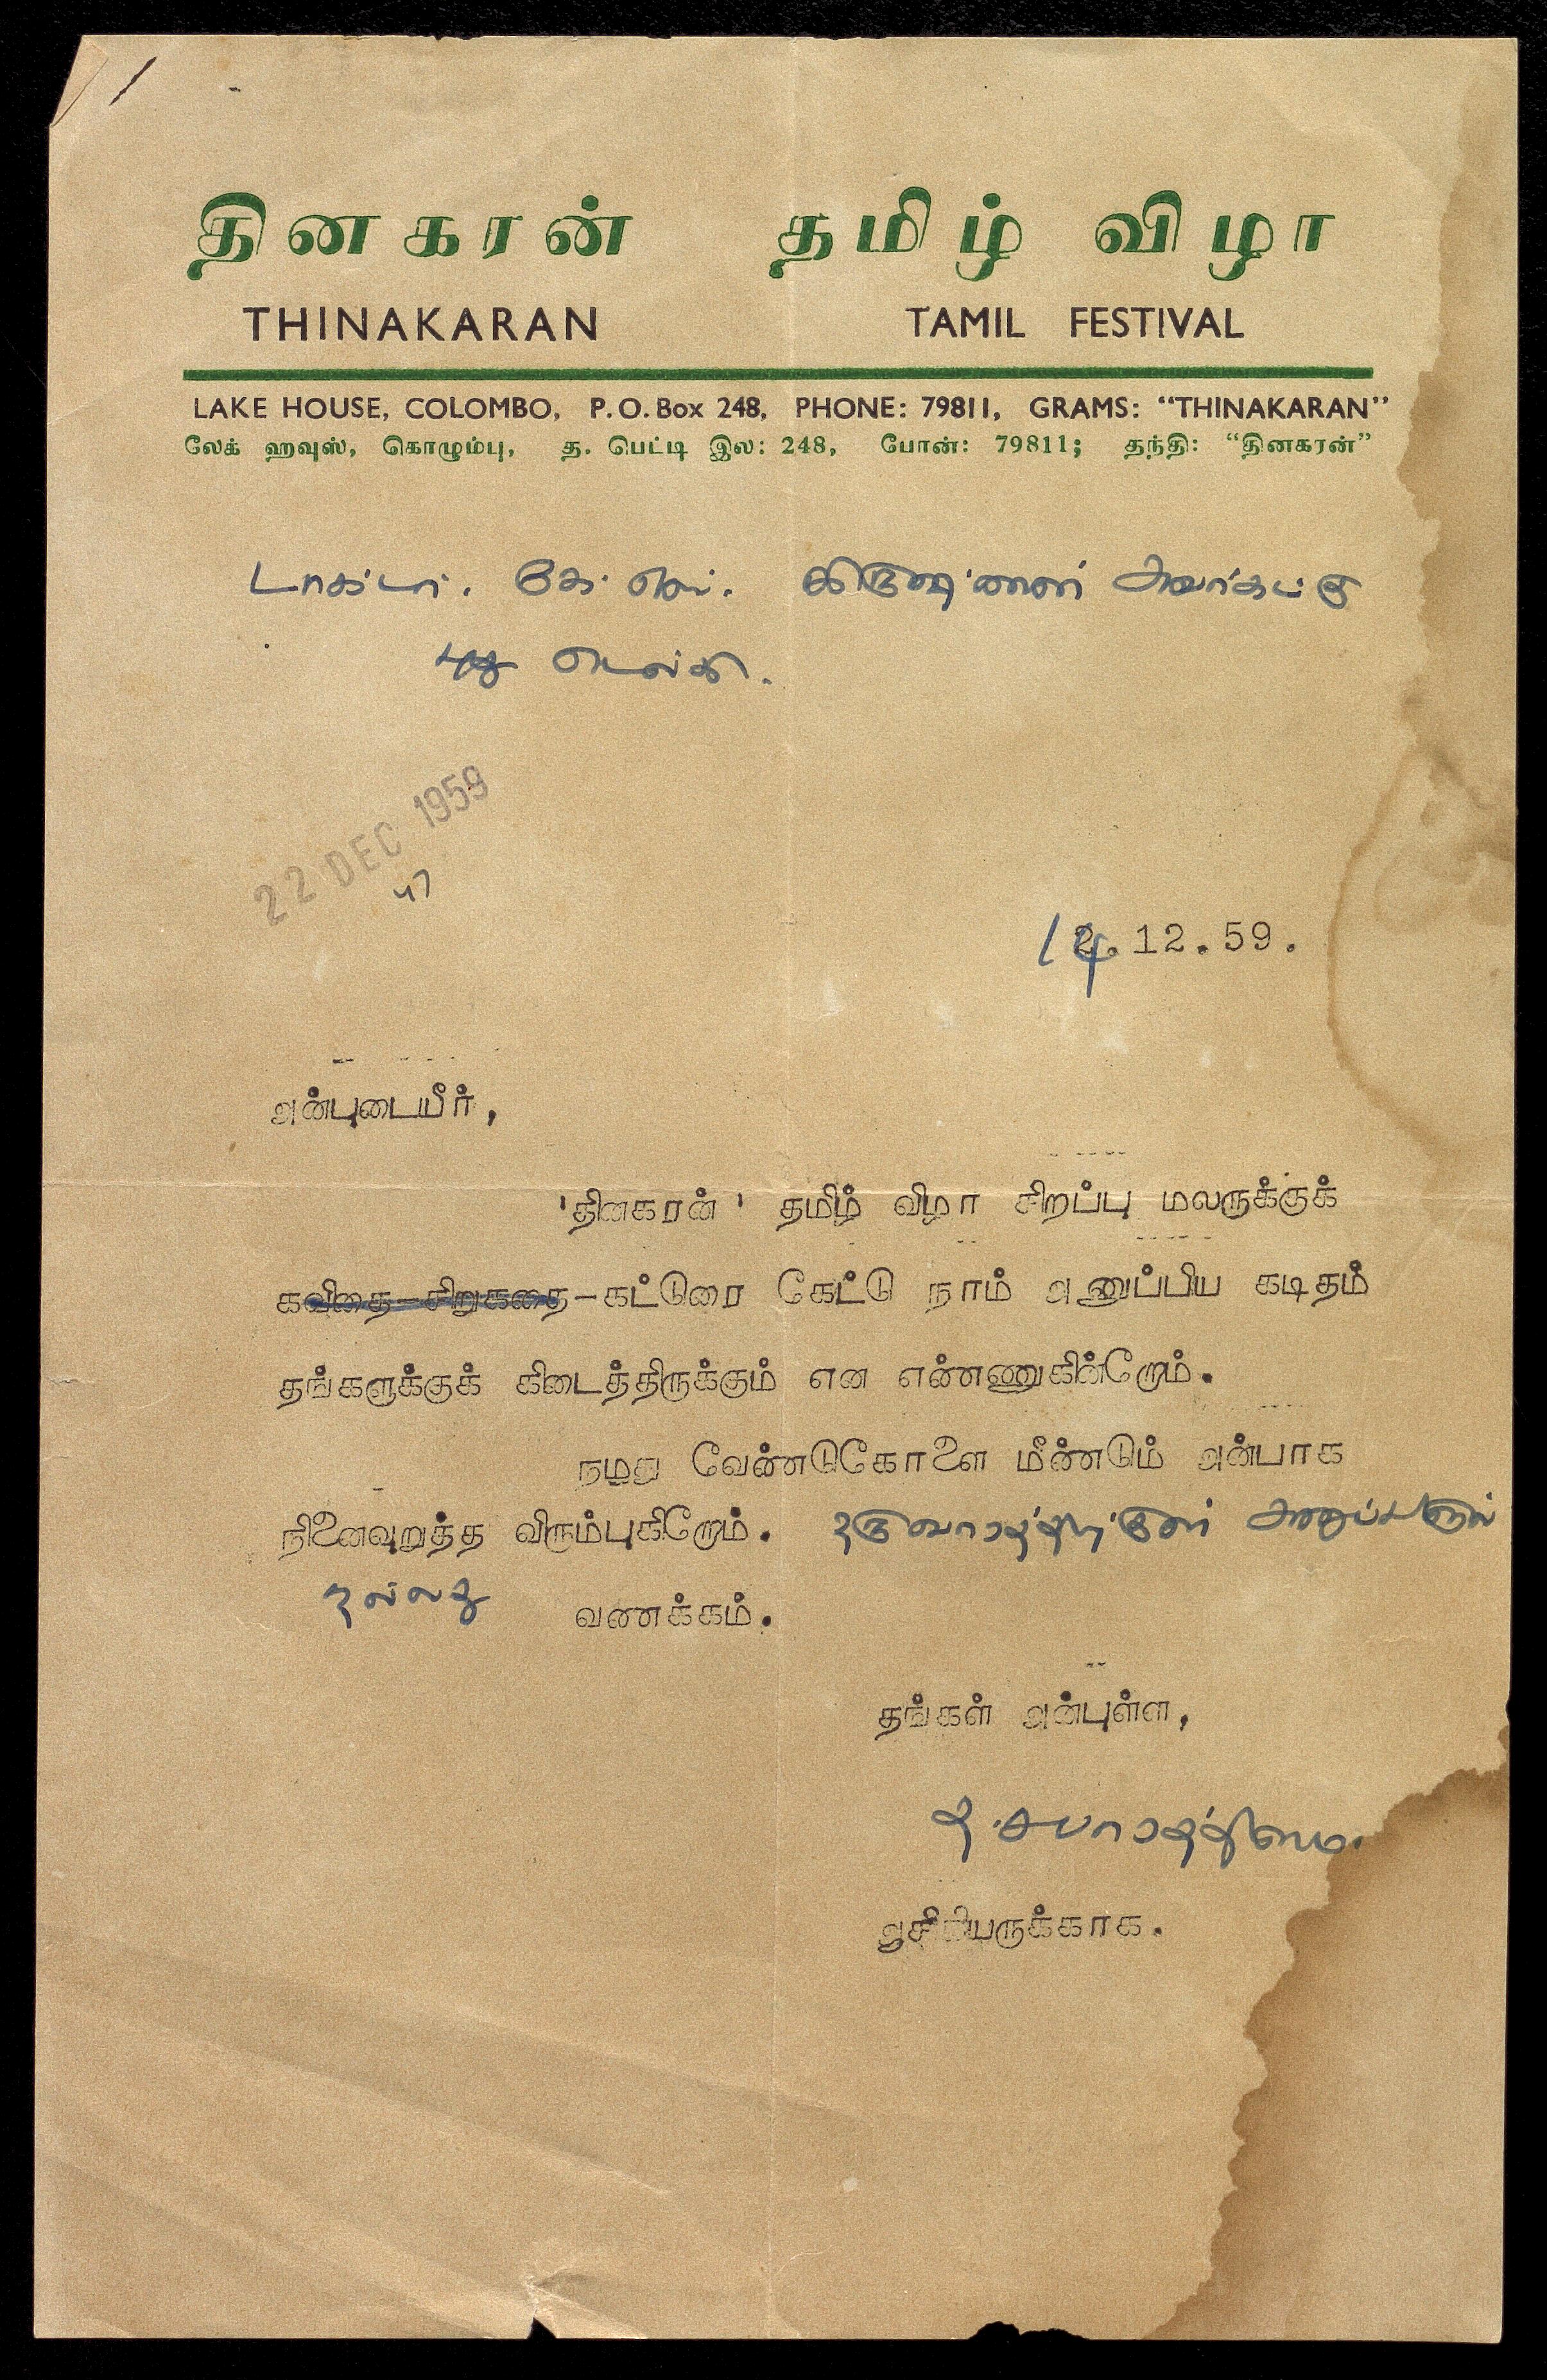 தினகரன் தமிழ் விழா
THINAKARAN TAMIL FESTIVAL
LAKE HOUSE, COLOMBO, P.O. Box 248, PHONE: 79811, GRAMS: "THINAKARAN"
லேக் ஹவுஸ், கொழும்பு, த. பெட்டி இல: 248, போன்: 79811; தந்தி: "தினகரன்"
டாக்டர். கே. எஸ். கிருஷ்ணன் அவர்கட்கு
புது டெல்கி.
22 DEC 1959
14.12.59.
அன்புடையீர்,
'தினகரன்' தமிழ் விழா சிறப்பு மலருக்குக்
கவிதை-சிறுகதை-கட்டுரை கேட்டு நாம் அனுப்பிய கடிதம்
தங்களுக்குக் கிடைத்திருக்கும் என எண்ணுகின்றோம்.
நமது வேண்டுகோளை மீண்டும் அன்பாக
நினைவுறுத்த விரும்புகிறோம். ஒருவாரத்திற்குள் அனுப்பினால்
நல்லது வணக்கம்.
தங்கள் அன்புள்ள,
த. சபாரத்தினம்.
ஆசிரியருக்காக.